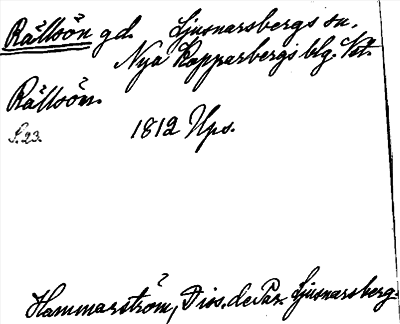 Rällsön gd. Ljusnarsbergs sn.
Nya Kopparbergs blg. Vstm.
Rällsön.
S. 23. 1812 Ups.
Hammarström, Diss. de Par. Ljusnarsberg.